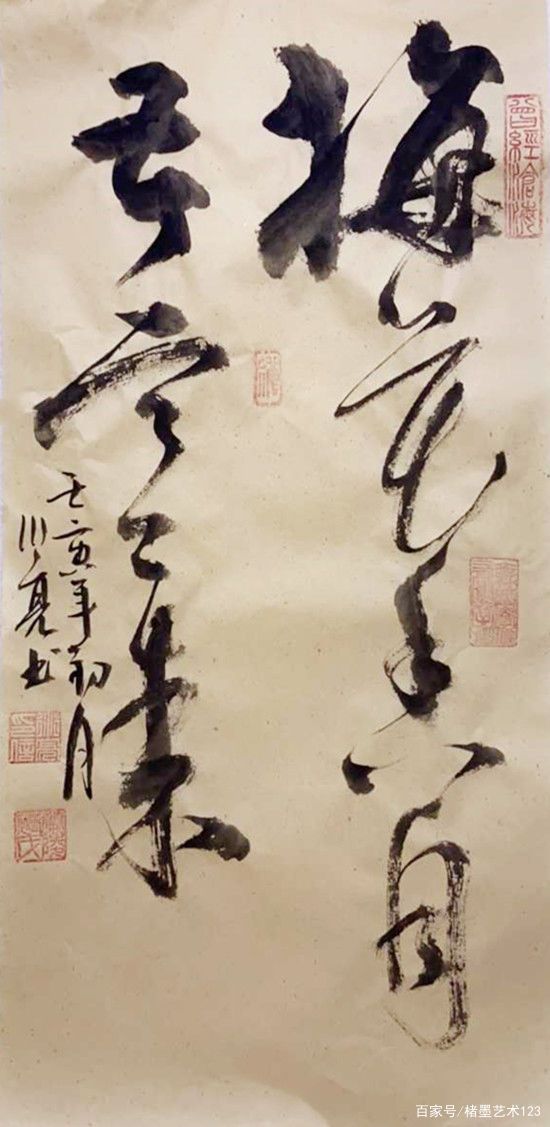 梅花香自
苦寒来
壬寅年初月
川亮书
曾经沧海
百家号/楮墨艺术123